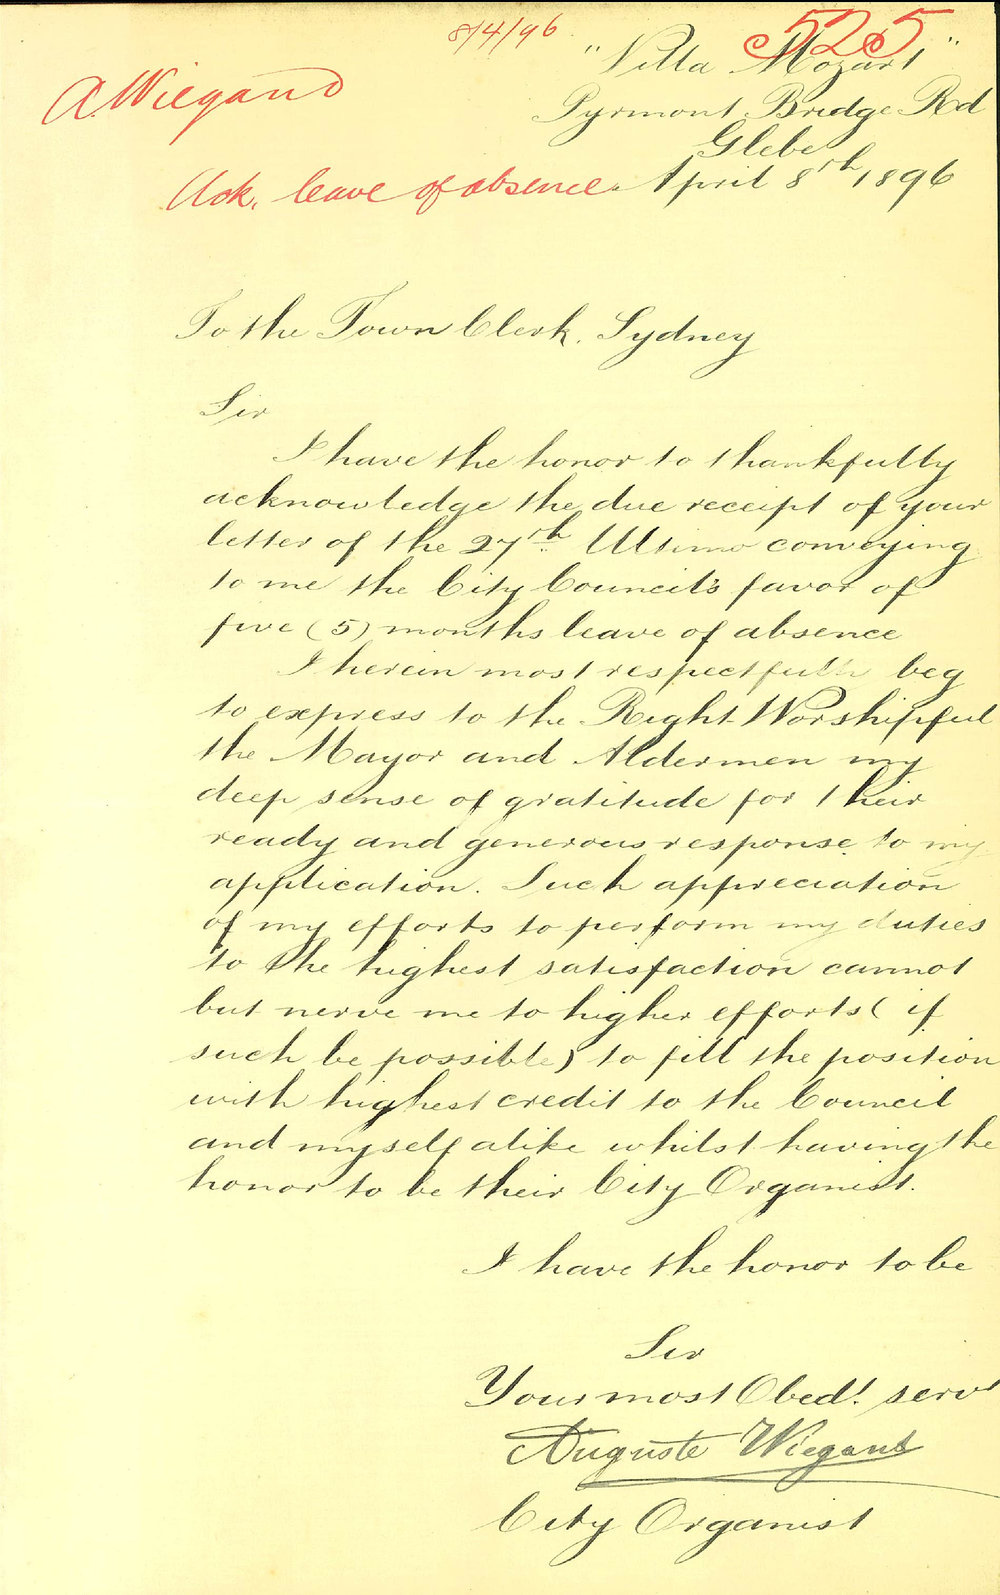 8/4/96
525
"Villa Mozart"
A. Wiegand
Pyrmont Bridge Rd
Glebe
Ask. leave of absence.
April 8th 1896
To the Town Clerk, Sydney
Sir
I have the honor to thankfully
acknowledge the due receipt of your
letter of the 27th Ultimo conveying
to me the City Council's favor of
five (5) months leave of absence
I herein most respectfully beg
to express to the Right Worshipful
the Mayor and Aldermen my
deep sense of gratitude for their
ready and generous response to my
application. Such appreciation
of my efforts to perform my duties
to the highest satisfaction cannot
but nerve me to higher efforts (if
such be possible) to fill the position
with highest credit to the Council
and myself alike whilst having the
honor to be their City Organist.
I have the honor to be
Sir
Your most Obedt. servt
Auguste Wiegand
City Organist